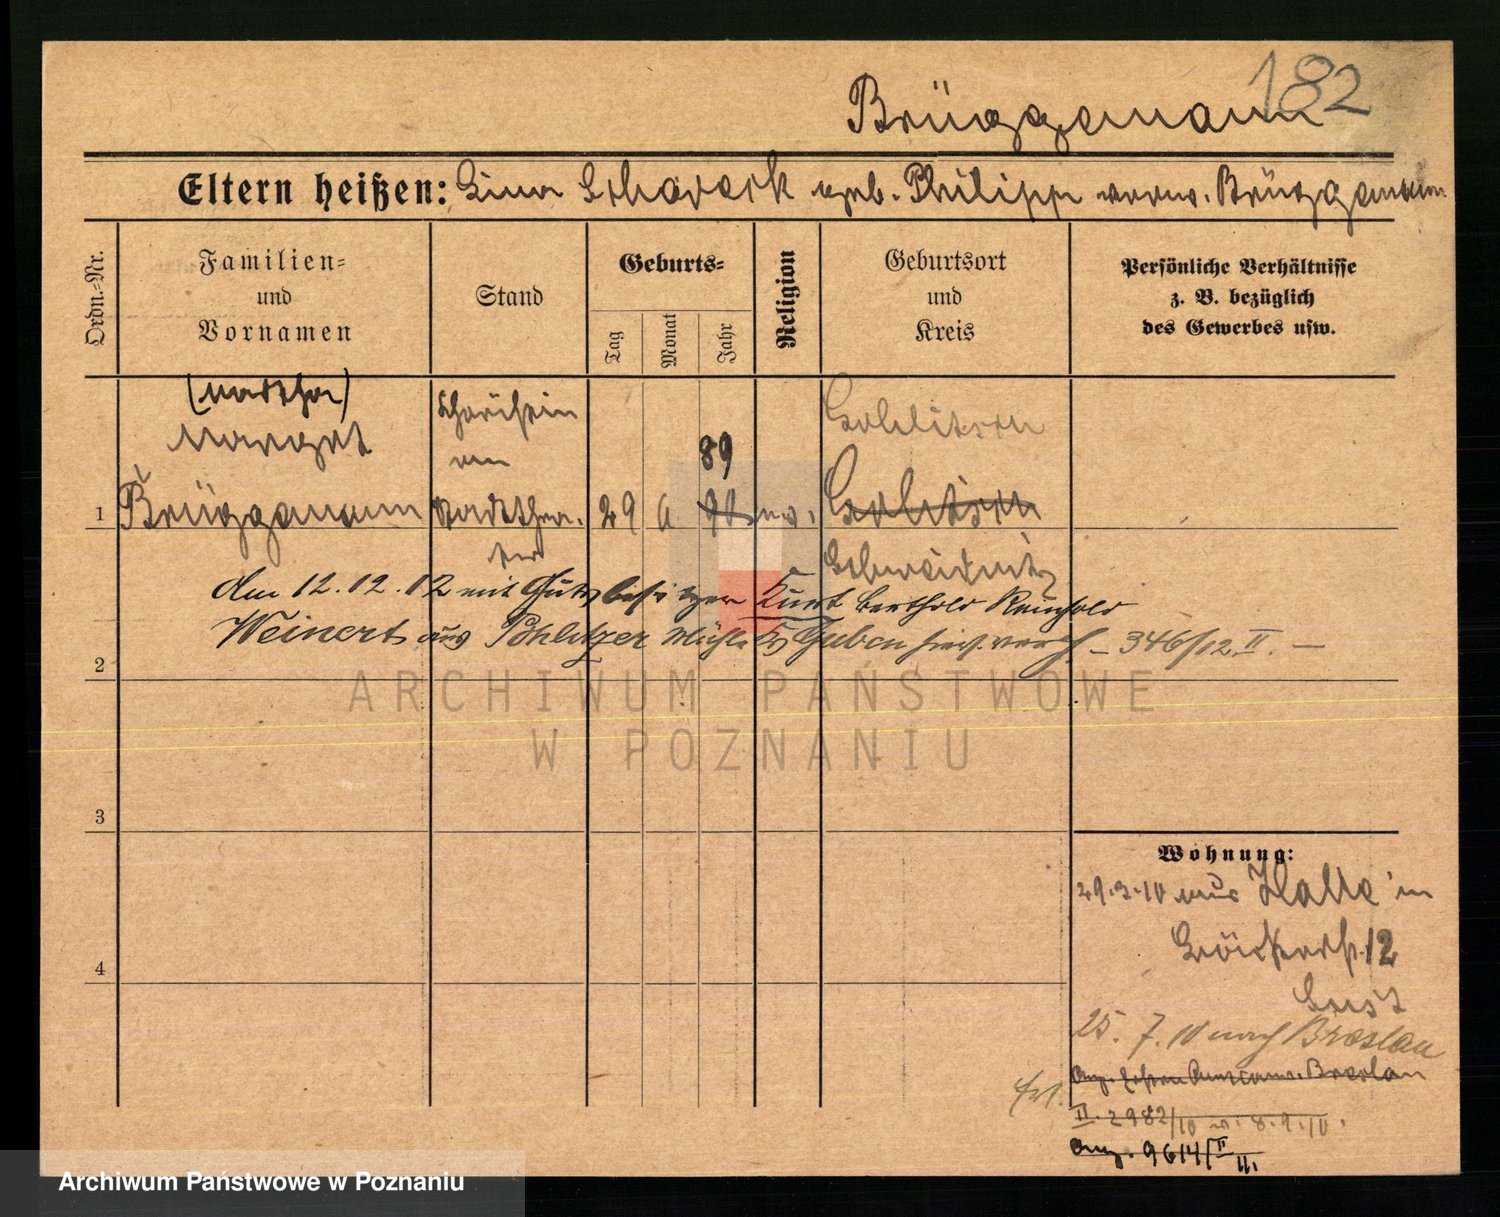 182
Brüggemann
Eltern heißen: geb. Philipp verw. Brüggemann
Ordn.-Nr.
Familien-
und
Vornamen
Stand
Geburts-
Tag
Monat
Jahr
Religion
Geburtsort
und
Kreis
Persönliche Verhältnisse
z. B. bezüglich
des Gewerbes usw.
(Martha)
Margret
89
1 Brüggemann 29 6 90 ev.
am
Stadtthea-
ter
Schweidnitz
Am 12.12.12 mit Gutsbesitzer Kurt Berthold Reinhold
Weinert aus Pohlitzer Mühle Kr Guben hies. verh. – 346/12 II. –
2
ARCHIWUM PAŃSTWOWE
W POZNANIU
3
Wohnung:
29.3.10 aus Halle in
12
4
25.7.10 nach Breslau
Breslau
II. 2982/10 v. 8.9.10.
Ang. 9614/II
Archiwum Państwowe w Poznaniu